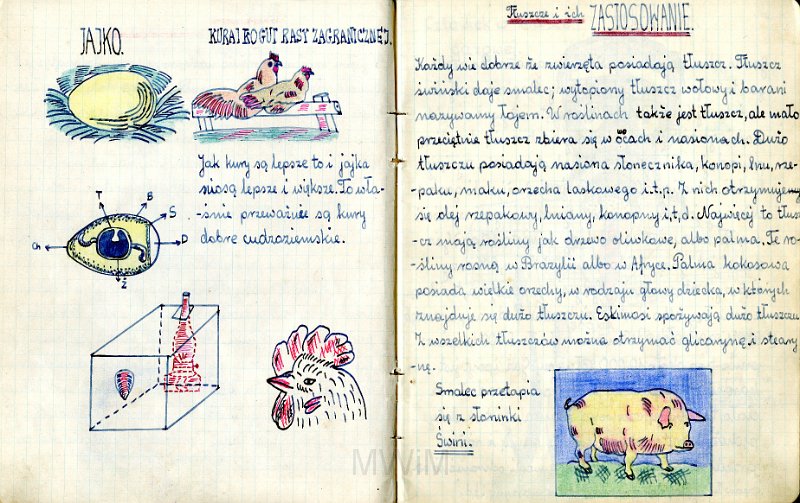 JAJKO.
KURA I KOGUT RAST ZAGRANICZNEJ.
Jak kury są lepsze to i jajka
niosą lepsze i większe. To wła-
-śnie przeważnie są kury
dobre cudzoziemskie.
T
B
S
Ch
D
Ż
Tłuszcze i ich ZASTOSOWANIE.
Każdy wie dobrze że zwierzęta posiadają tłuszcz. Tłuszcz
świński daje smalec; wytopiony tłuszcz wołowy i barani
nazywamy łojem. W roślinach także jest tłuszcz, ale mało
przeciętnie tłuszcz zbiera się w ocach i nasionach. Dużo
tłuszczu posiadają nasiona słonecznika, konopi, lnu, rze-
-paku, maku, orzecha laskowego i.t.p. Z nich otrzymujemy
się olej rzepakowy, lniany, konopny i,t,d. Najwięcej to tłusz-
-cz mają rośliny jak drzewo oliwkowe, albo palma. Te ro-
-śliny rosną w Brazylii albo w Afryce. Palma kokosowa
posiada wielkie orzechy, w rodzaju głowy dziecka, w których
znajduje się dużo tłuszczu. Eskimosi spożywają dużo tłuszczu
Z wszelkich tłuszczów można otrzymać glicerynę, i steary-
-nę.
Smalec przetapia
się z słoninki
Świni.
MWiM